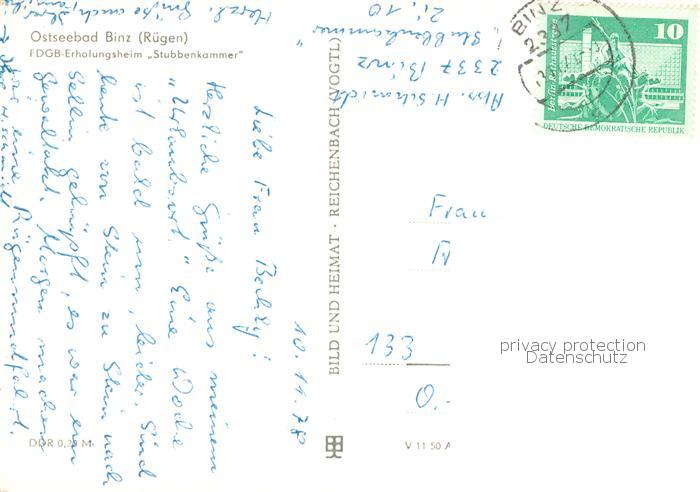 Ostseebad Binz (Rügen)
FDGB-Erholungsheim „Stubbenkammer"
Abs. H. Schmidt
2337 Binz
„Stubbenkammer"
Zi. 10
BINZ
2337
10
Berlin, Rathausstraße
DEUTSCHE DEMOKRATISCHE REPUBLIK
10.11.78
Liebe Frau
Herzliche Grüße aus meinem
"Urlaubsort." Eine Woche
ist bald um, leider. Sind
heute von Stein zu Stein nach
Sellin gehüpft, es war ein
Gewaltakt. Morgen machen
wir eine Rügenrundfahrt.
H. Schmidt
Herzl. Grüße auch
BILD UND HEIMAT · REICHENBACH (VOGTL)
Frau
133
privacy protection
Datenschutz
O.-
DDR 0,20 M
V 11 50 A